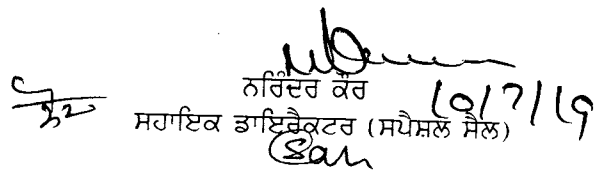 ਨਰਿੰਦਰ ਕੌਰ
10/7/19
ਸਹਾਇਕ ਡਾਇਰੈਕਟਰ (ਸਪੈਸ਼ਲ ਸੈਲ)